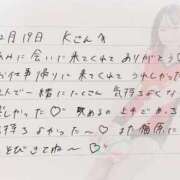 2月19日 Kさん
みに会いに来てくれてありがとう♡
お仕事帰りに来てくれてうれしかった
んで一緒にたくさん気持ちよくな
しかった♡ 攻めるの上手で
持ちよかった〜♡ また
あそびきてね〜♡